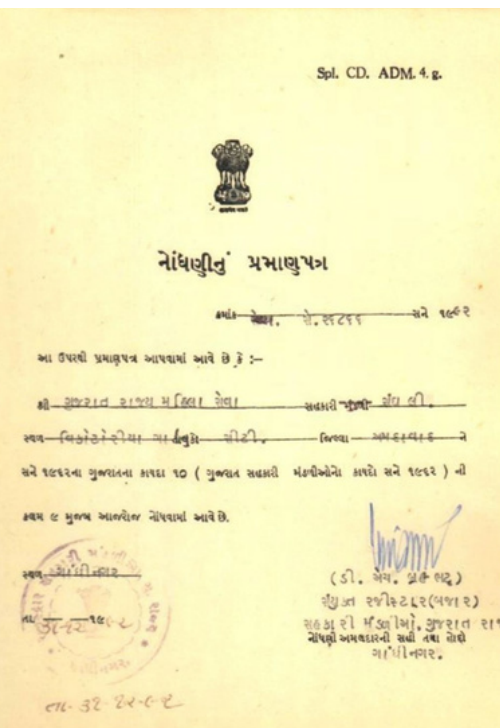 Spl. CD. ADM. 4. g.
નોંધણીનું પ્રમાણપત્ર
ક્રમાંક સેવા. સે. ૨૬૮૬૬ સને ૧૯૯૨
આ ઉપરથી પ્રમાણપત્ર આપવામાં આવે છે કે :—
શ્રી ગુજરાત રાજ્ય મહિલા સેવા સહકારી સંઘ લી.
સ્થળ વિકટોરીયા ગાર્ડન તાલુકો સીટી. જિલ્લા અમદાવાદ ને
સને ૧૯૬૨ના ગુજરાતના કાયદા ૧૦ ( ગુજરાત સહકારી મંડળીઓનો કાયદો સને ૧૯૬૨ ) ની
કલમ ૯ મુજબ આજરોજ નોંધવામાં આવે છે.
સ્થળ ગાંધીનગર
તા ૩૧-૧૨ ૧૯૯૨
(ડી. એચ. બ્રહ્મભટ્ટ)
સંયુક્ત રજીસ્ટ્રાર(બજાર)
સહકારી મંડળીઓ, ગુજરાત રા
નોંધણી અમલદારની સહી તથા હોદ્દો
ગાંધીનગર.
તા- ૩૧-૧૨-૯૨